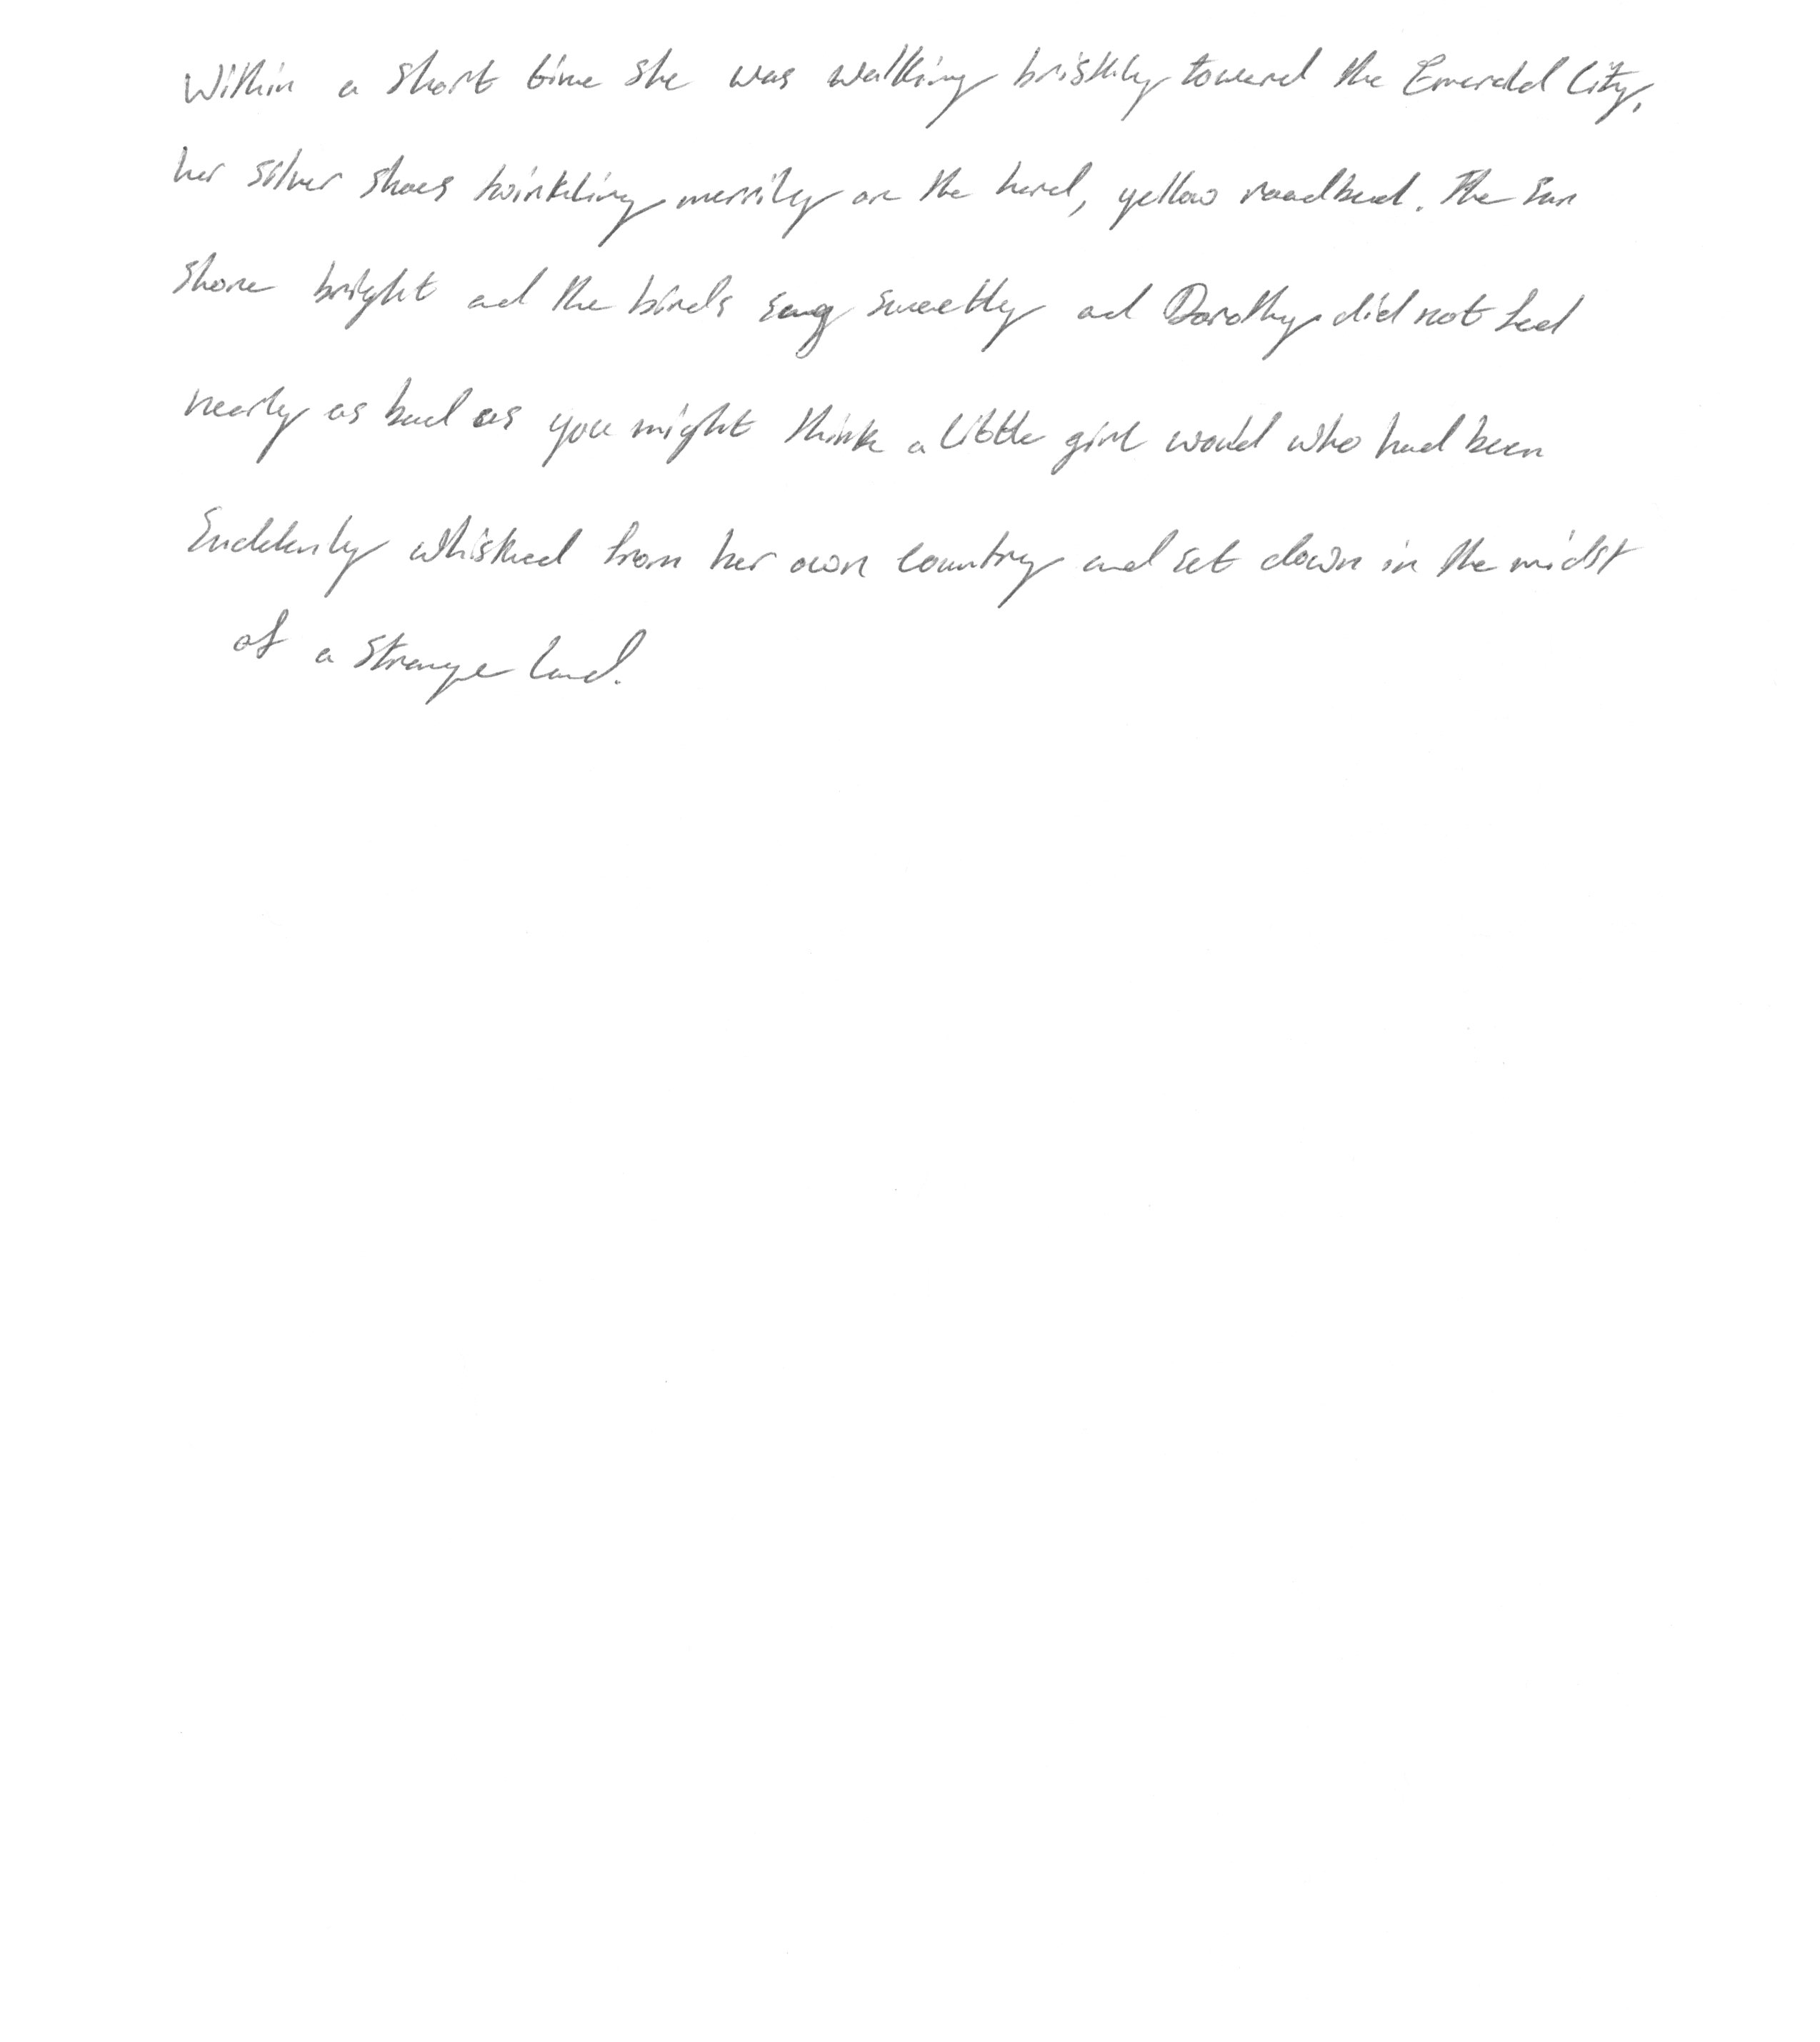 Within a short time she was walking briskly toward the Emerald City,
her silver shoes twinkling merrily on the hard, yellow roadbed. The sun
shone bright and the birds sang sweetly and Dorothy did not feel
nearly as bad as you might think a little girl would who had been
suddenly whisked from her own country and set down in the midst
of a strange land.